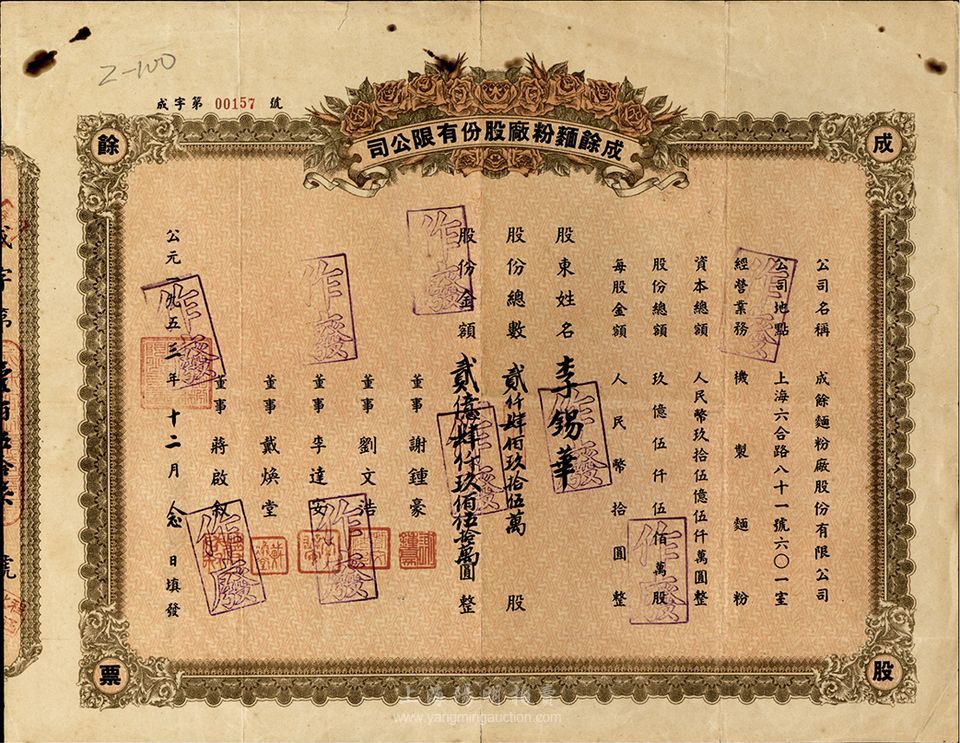 Z-100
成字第 00157 號
成餘麵粉廠股份有限公司
成
餘
股
票
公司名稱 成餘麵粉廠股份有限公司
公司地點 上海六合路八十一號六〇一室
經營業務 機製麵粉
資本總額 人民幣玖拾伍億伍仟萬圓整
股份總額 玖億伍仟伍佰萬股
每股金額 人民幣拾圓整
股東姓名 李錫華
股份總數 貳仟肆佰玖拾伍萬股
股份金額 貳億肆仟玖佰伍拾萬圓整
董事 謝鍾豪
董事 劉文浩
董事 李達安
董事 戴煥堂
董事 蔣啟敘
公元一九五三年十二月念日填發
作廢
作廢
作廢
作廢
作廢
作廢
作廢
作廢
作廢
成字第壹佰伍拾柒號
上海陽明拍賣
www.yangmingauction.com